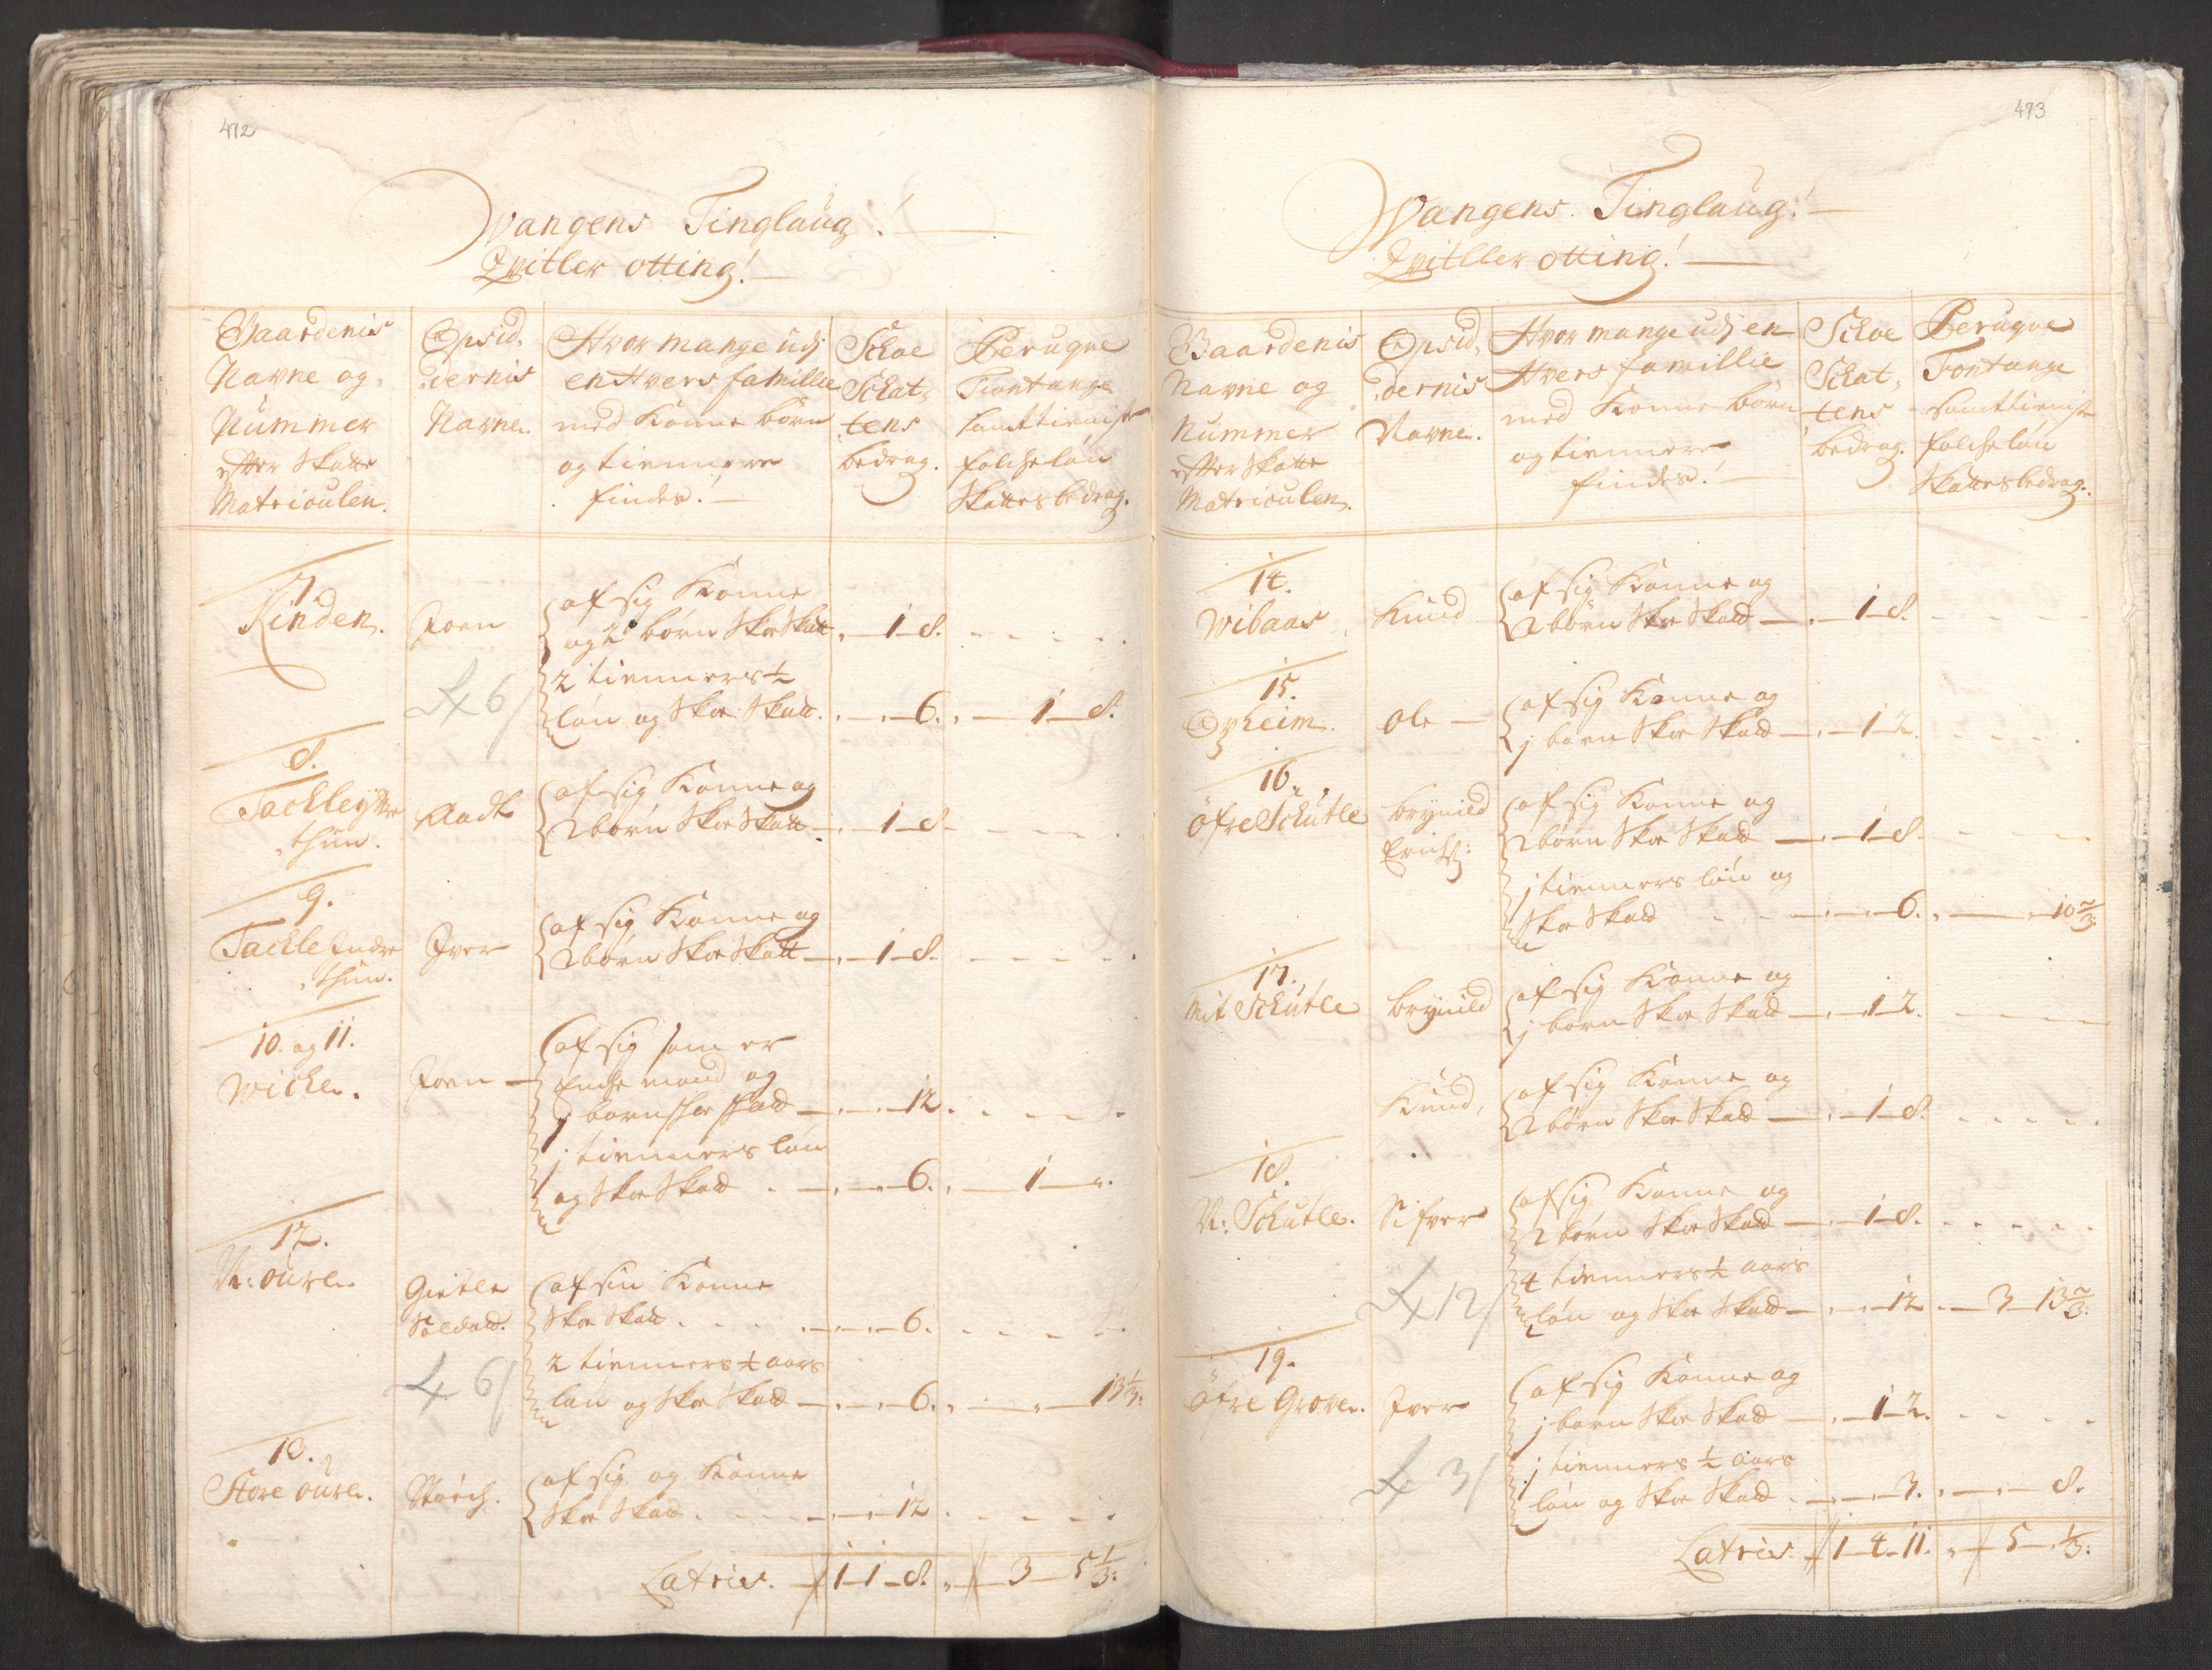 472
Wangens Tinglaug!
Qvitler otting!
Gaardenis
Navne og
Nummer
effter Skatte
Matriculen.
Opsid-
dernis
Navne.
Hvor mange udj
en Hvers familie
med Konne børn
og tiennere
findes!
Schoe
Schat-
tens
bedrag.
Peruque
Fontange
samt tieniste
folchs løn
Skattes bedrag.
7.
Kinden.
Joen
af sig Konne
og 2 børn Skoe Skatt
1 - 8.
2 tienners ½
løn og Skoe Skatt.
6.
1 - 8.
4 6/
8.
Tackle yttre
thun.
Aadt
af sig Konne og
2 børn Skoe Skatt
1 - 8
9.
Tackle Indre
thun.
Iver
af sig Konne og
2 børn Skoe Skatt
1 - 8.
10. og 11.
Wicke.
Joen
af sig som er
Enche mand og
j barn schoe schatt
12.
j tienners løn
og Skoe Skatt
6.
1
12.
N: oure.
Gietle
Soldatt.
af sin Konne
Skoe Skatt
6.
2 tienners ½ aars
løn og Skoe Skatt
6.
13⅓.
4 6/
13.
Store oure.
af sig og Konne
Skoe Skatt
12
Latris. 1 - 1 - 8. 3 - 5⅓.
473
Wangens Tinglaug!
Qvitller otting!
Gaardenis
Navne og
Nummer
effter Skatte
Matriculen.
Opsid-
dernis
Navne.
Hvor mange udj en
Hvers familie
med Konne børn
og tiennere
findes!
Schoe
Schat-
tens
bedrag.
Peruque
Fontange
samt tieniste
folchs løn
Skattes bedrag.
14.
Wibaas
Knud
af sig Konne og
2 børn Skoe Skatt
1 - 8.
15.
Opheim.
Ole
af sig Konne og
j barn Skoe Skatt
1 - 2.
16.
Öfre Schutle
Brynild
Erichs:
af sig Konne og
2 børn Skoe Skatt
1 - 8.
j tienners løn og
Skoe Skatt
6.
10⅔
17.
Mit Schutle
Brynild
af sig Konne og
j barn Skoe Skatt
1 - 2.
Knud,
af sig Konne og
2 børn Skoe Skatt
1 - 8.
18.
N: Schutle.
Sifver
af sig Konne og
2 børn Skoe Skatt
1 - 8.
4 tienners ½ aars
løn og Skoe Skatt
12
3 - 13⅔.
4 12/
19.
Öfre Grove.
Iver
af sig Konne og
j barn Skoe Skatt
1 - 2.
j tienners ½ aars
løn og Skoe Skatt
3.
8.
4 3/
Latris. 1 - 4 - 11. 5 - ⅓.